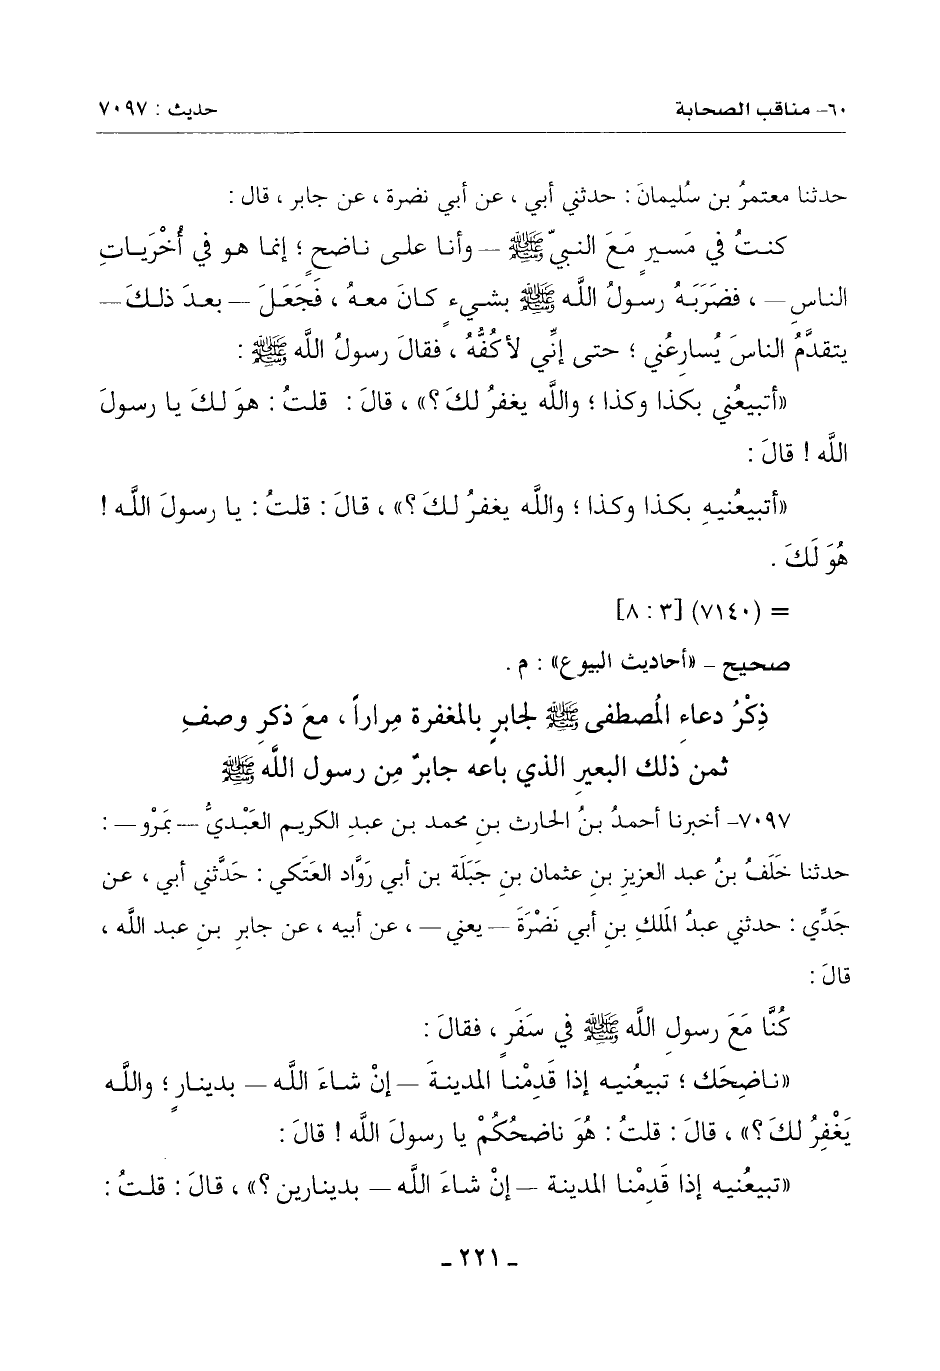 ٦٠- مناقب الصحابة حديث : ٧٠٩٧
حدثنا معتمرُ بن سُليمانَ : حدثني أبي ، عن أبي نضرة ، عن جابر ، قال :
كنتُ في مَسيرٍ مَعَ النبيِّ ﷺ — وأنا على ناضحٍ ؛ إنما هو في أُخْرَيـاتِ
الناسِ — ، فضَرَبَهُ رسولُ اللَّه ﷺ بشيءٍ كـانَ معهُ ، فَجَعَلَ — بعدَ ذلكَ —
يتقدَّمُ الناسَ يُسارعُني ؛ حتى إنِّي لأكُفُّهُ ، فقالَ رسولُ اللَّه ﷺ :
«أتبيعُني بكذا وكذا ؛ واللَّه يغفرُ لكَ؟» ، قالَ : قلتُ : هوَ لكَ يا رسولَ
اللَّه ! قالَ :
«أتبيعُنيهِ بكذا وكذا ؛ واللَّه يغفرُ لكَ؟» ، قالَ : قلتُ : يا رسولَ اللَّه !
هُوَ لَكَ .
= (٧١٤٠) [٣ : ٨]
صحيح - «أحاديث البيوع» : م .
ذِكْرُ دعاءِ المُصطفى ﷺ لجابرٍ بالمغفرة مِراراً ، معَ ذكرِ وصفِ
ثمن ذلك البعيرِ الذي باعه جابرٌ مِن رسول اللَّه ﷺ
٧٠٩٧- أخبرنا أحمدُ بنُ الحارث بنِ محمد بن عبدِ الكريم العَبْديُّ — بمَرْو — :
حدثنا خَلَفُ بنُ عبد العزيزِ بنِ عثمان بنِ جَبَلَة بن أبي رَوَّاد العَتَكي : حَدَّثني أبي ، عن
جَدِّي : حدثني عبدُ المَلكِ بنِ أبي نَضْرَةَ — يعني — ، عن أبيه ، عن جابرِ بنِ عبد اللَّه ،
قالَ :
كُنَّا مَعَ رسولِ اللَّه ﷺ في سَفَرٍ ، فقالَ :
«ناضِحَك ؛ تبيعُنيه إذا قَدِمْنا المدينةَ — إنْ شاءَ اللَّه — بدينارٍ ؛ واللَّه
يَغْفِرُ لكَ؟» ، قالَ : قلتُ : هُوَ ناضحُكُمْ يا رسولَ اللَّه ! قالَ :
«تبيعُنيه إذا قَدِمْنا المدينة — إنْ شاءَ اللَّه — بدينارين ؟» ، قالَ : قلتُ :
- ٢٢١ -